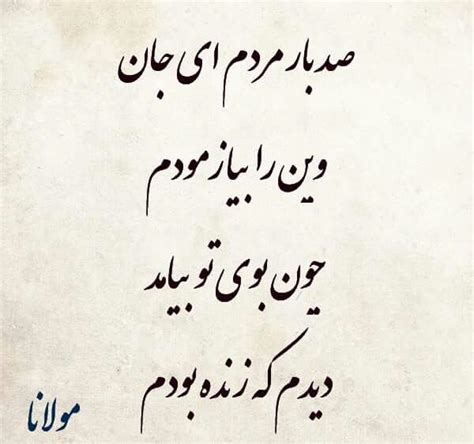 صد بار مردم ای جان
وین را بیازمودم
چون بوی تو بیامد
دیدم که زنده بودم
مولانا